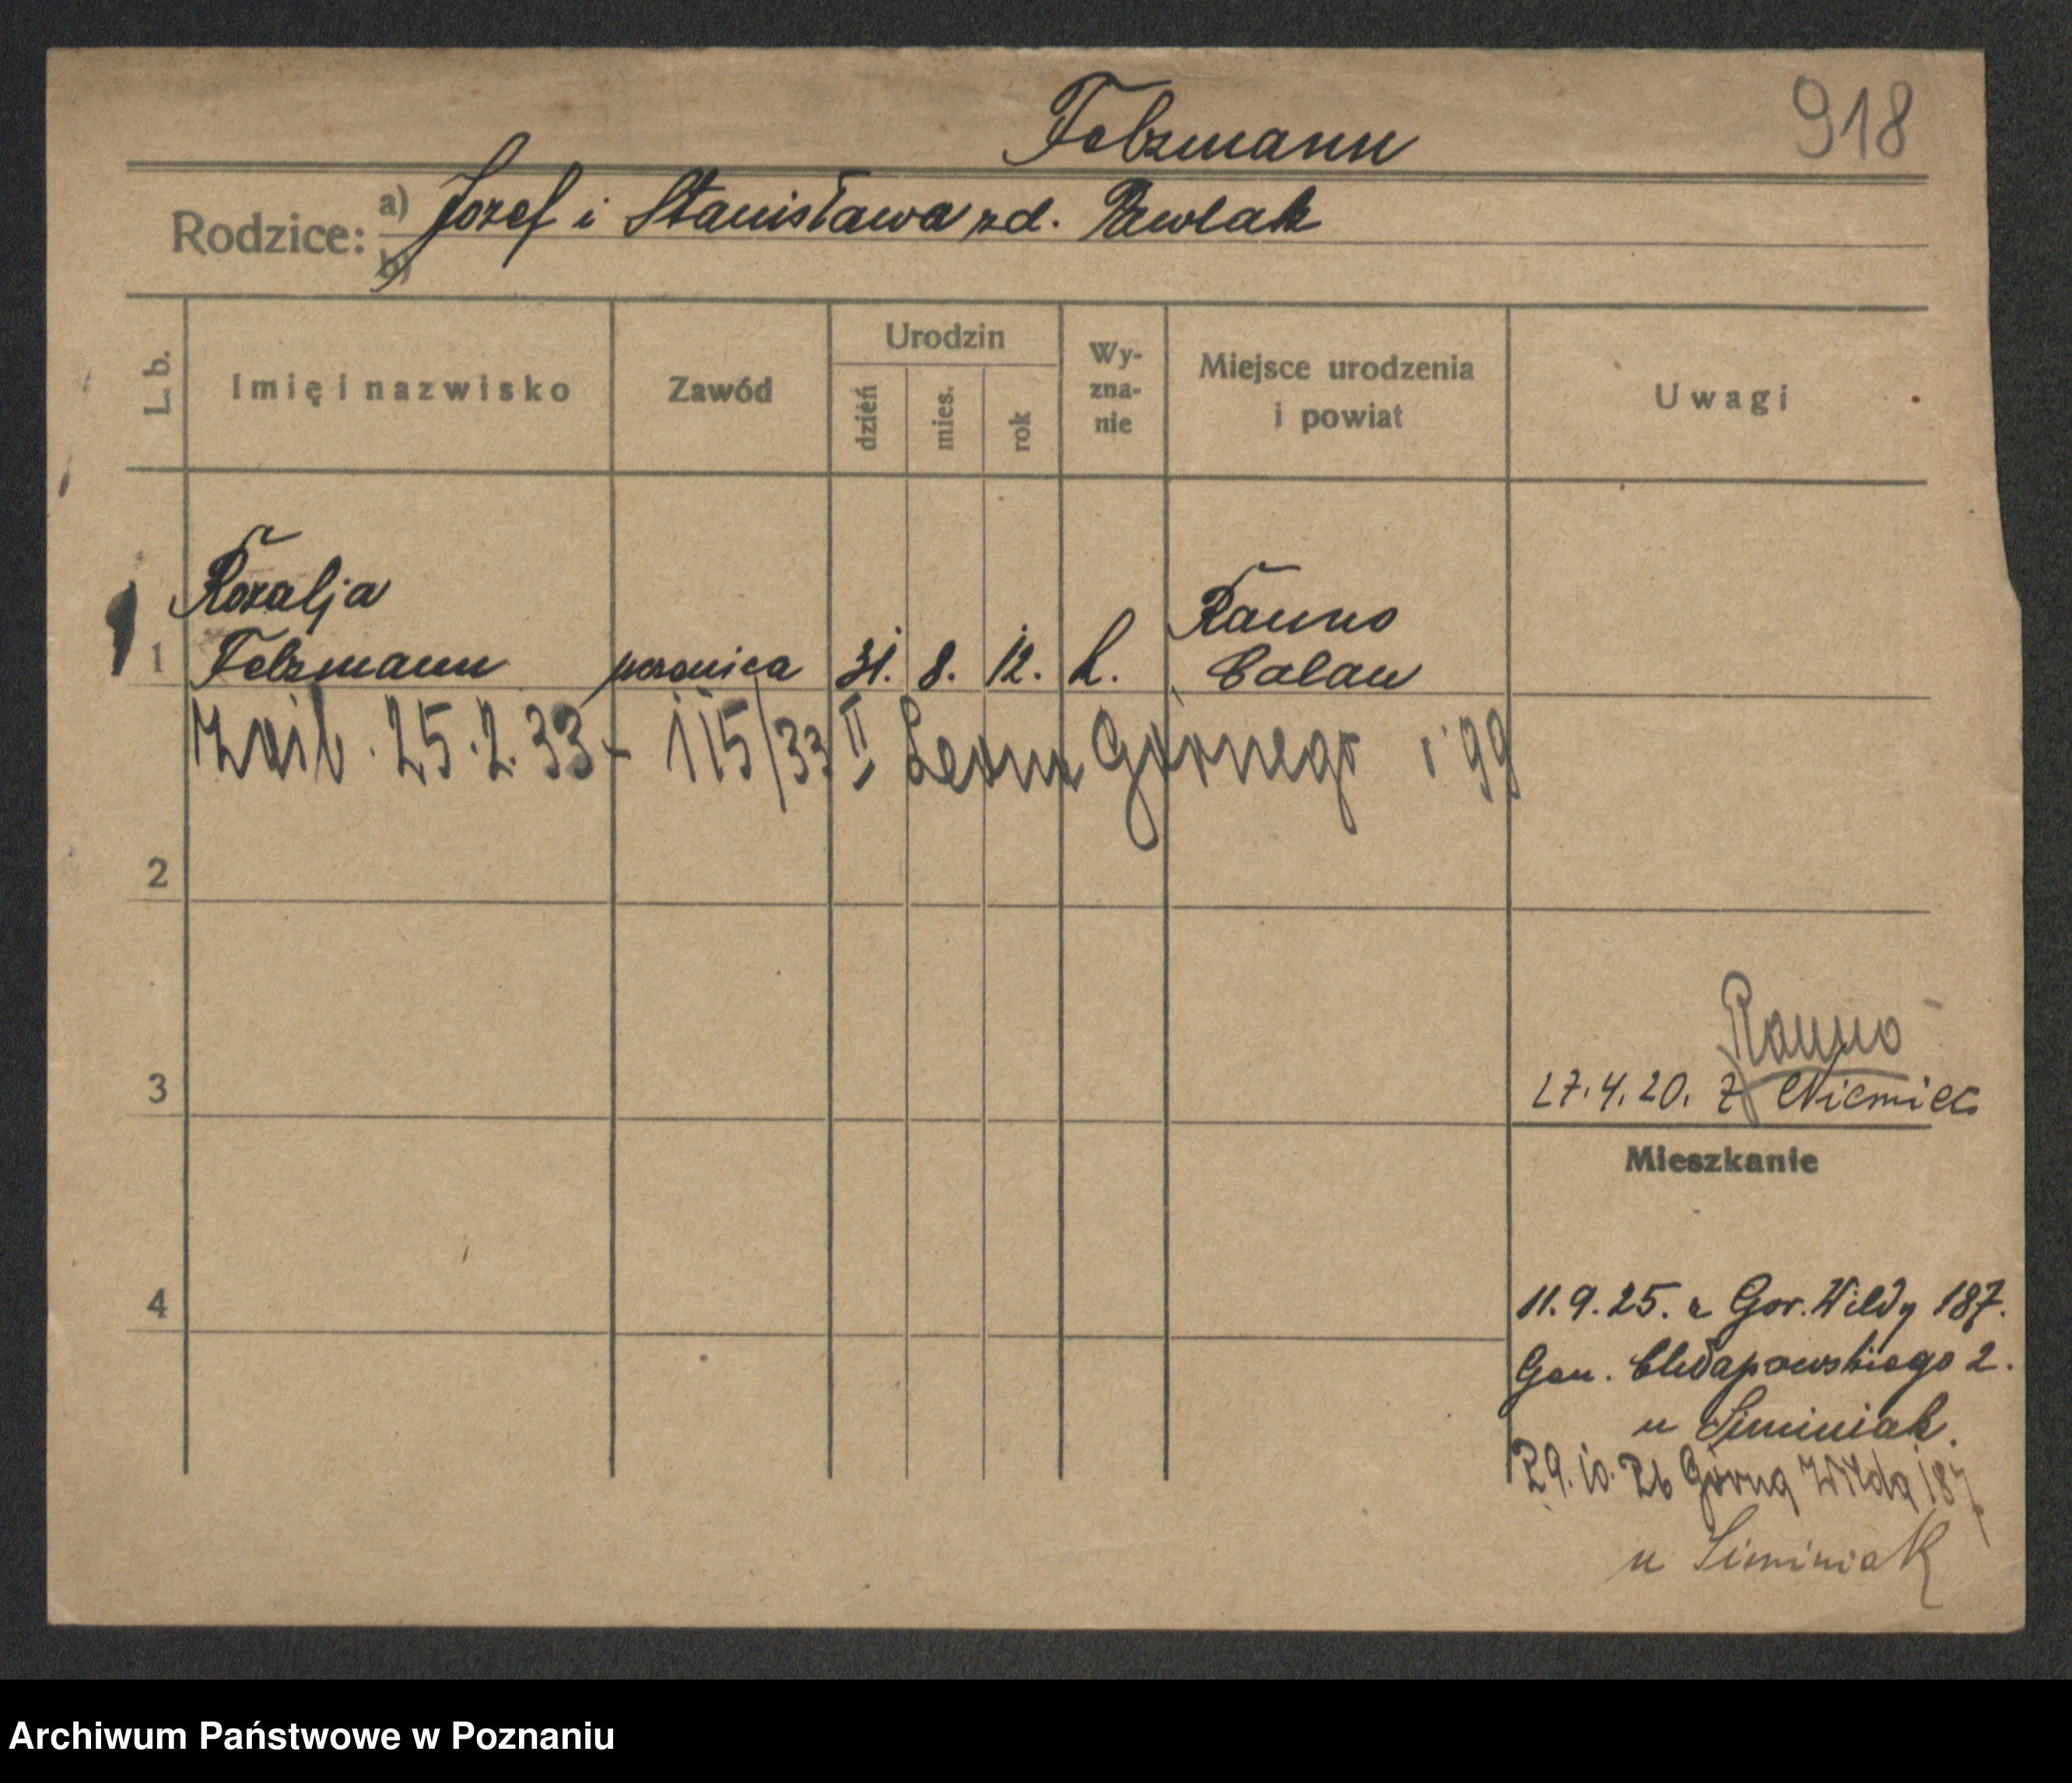 Felzmann
918
Rodzice: a) Jozef i Stanisława zd. Pawlak
b)
L. b.
Imię i nazwisko
Zawód
Urodzin
dzień
mies.
rok
Wy-
zna-
nie
Miejsce urodzenia
i powiat
Uwagi
Rozalja
Rauno
1 Felzmann 31. 8. 12. k. Calau
25.2.33 - 115/33 II
2
Rauno
3 27.4.20. z Niemiec
Mieszkanie
4 11.9.25. z Gor. Wildy 187.
Gen. Chłapowskiego 2.
u Siminiak.
29.10.26 Górna Wilda 187
u Siminiak
Archiwum Państwowe w Poznaniu